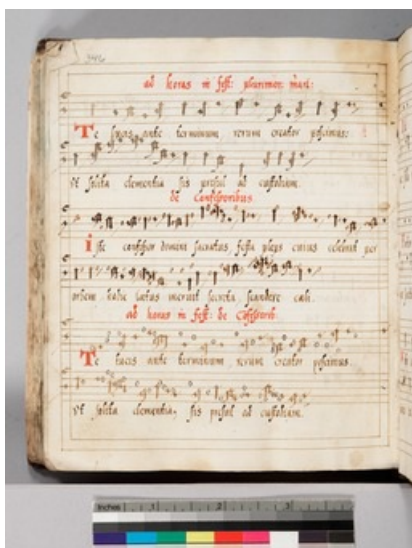 346
ad horas in fest: plurimor: mart:
Te lucis ante terminum rerum creator poscimus:
Vt solita clementia sis presul ad custodiam.
de Confessoribus
iste confessor domini sacratus festa plebs cuius celebrat per
orbem hodie laetus meruit secreta scandere caeli.
ad horas in fest: de Cofessorib.
Te lucis ante terminum rerum creator poscimus.
Vt solita clementia, sis presul ad custodiam.
Inches 1 2 3